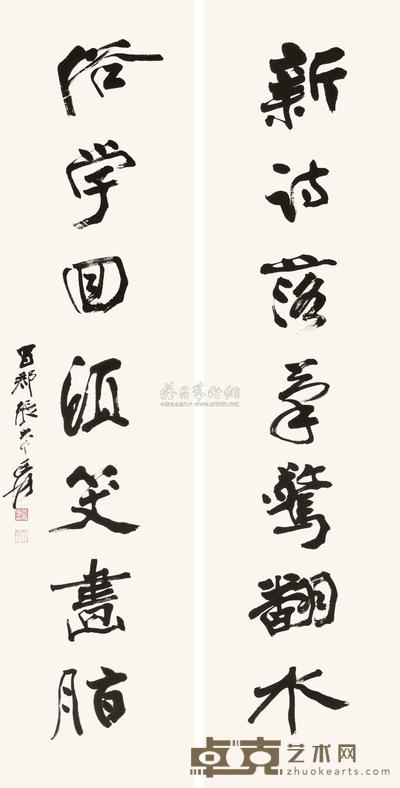 新詩落筆驚翻水
俗学回頭笑畫脂
蜀郡張大千爰
雅昌藝術網
www.artron.net
卓克艺术网
zhuokearts.com